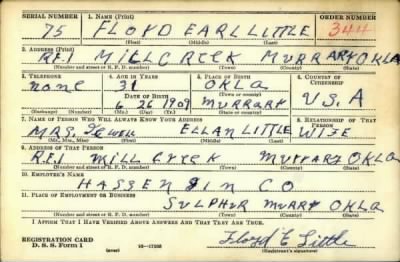 SERIAL NUMBER 1. NAME (Print) ORDER NUMBER
75 FLOYD EARL LITTLE 344
(First) (Middle) (Last)
2. ADDRESS (Print)
RE1 MILLCREEK MURRARY OKLA
(Number and street or R. F. D. number) (Town) (County) (State)
3. TELEPHONE 4. AGE IN YEARS 5. PLACE OF BIRTH 6. COUNTRY OF CITIZENSHIP
none 31 OKLA
DATE OF BIRTH (Town or county)
6 26 1909 MURRARY U.S.A
(Exchange) (Number) (Mo.) (Day) (Yr.) (State or country)
7. NAME OF PERSON WHO WILL ALWAYS KNOW YOUR ADDRESS 8. RELATIONSHIP OF THAT PERSON
MRS. ELLAN LITTLE WIFE
(Mr., Mrs., Miss) (First) (Middle) (Last)
9. ADDRESS OF THAT PERSON
RE1 MILL MURRARY OKLA
(Number and street or R. F. D. number) (Town) (County) (State)
10. EMPLOYER'S NAME
HASSEN CO
11. PLACE OF EMPLOYMENT OR BUSINESS
SULPHUR MURRY OKLA
(Number and street or R. F. D. number) (Town) (County) (State)
I AFFIRM THAT I HAVE VERIFIED ABOVE ANSWERS AND THAT THEY ARE TRUE.
REGISTRATION CARD
D. S. S. Form 1 (over) 16—17105 Floyd E Little
(Registrant's signature)